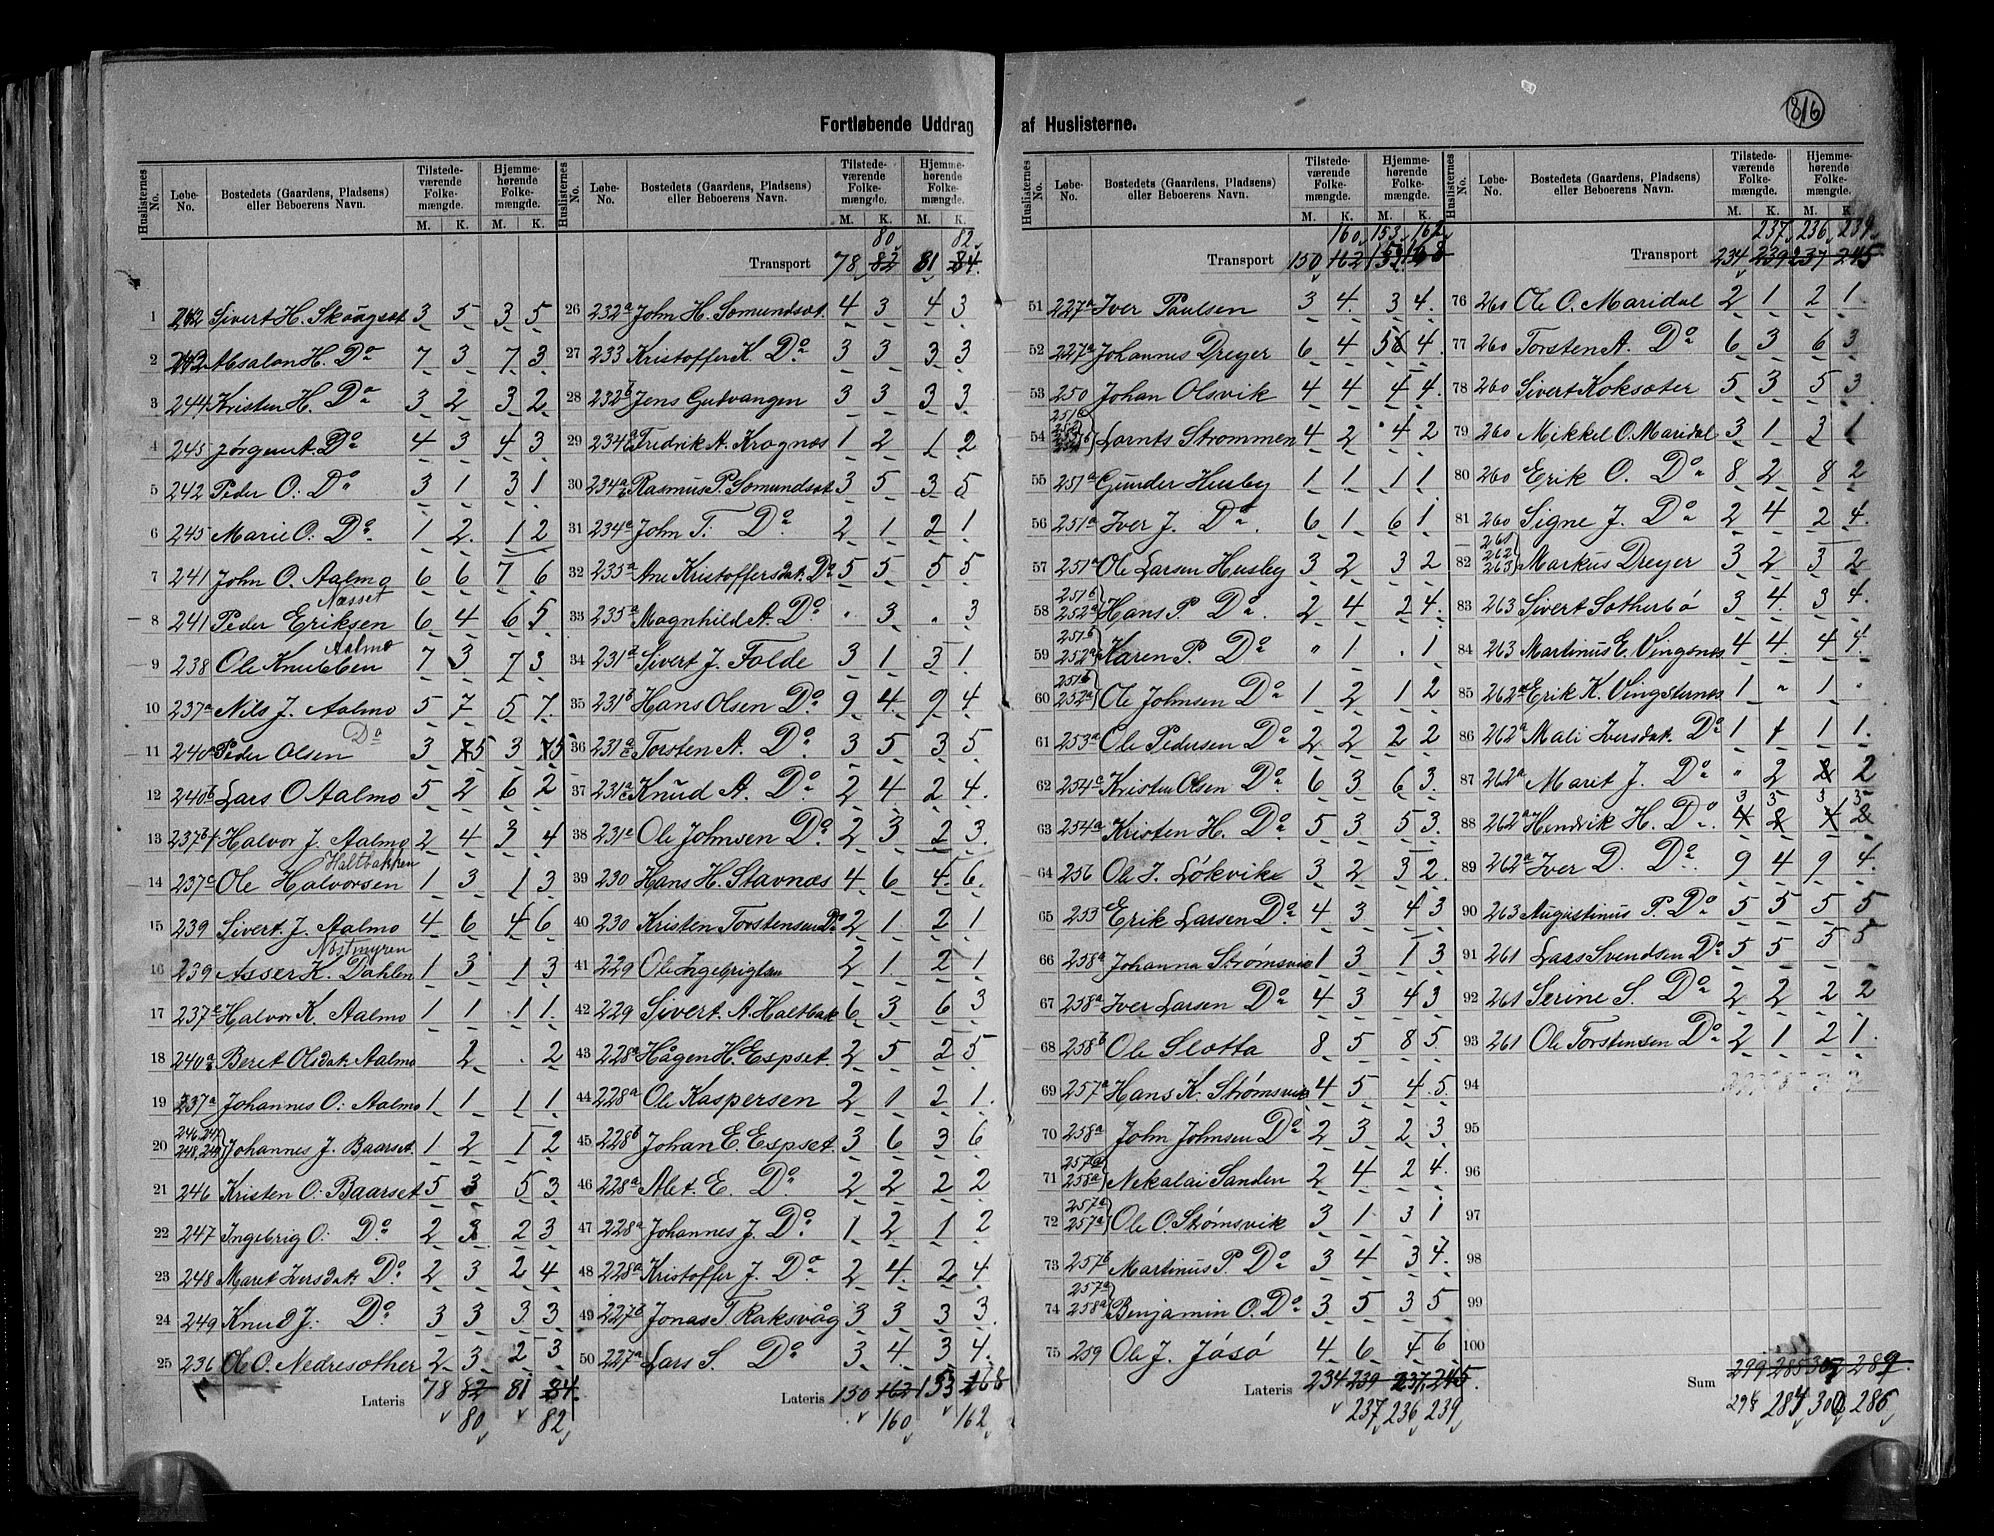 816
Fortløbende Uddrag af Huslisterne.
Huslisternes No. Løbe-No. Bostedets (Gaardens, Pladsens) eller Beboerens Navn. Tilstedeværende Folkemængde. M. K. Hjemmehørende Folkemængde. M. K.
1 242 Sivert H. Skaugset 3 5 3 5
2 243 Absalon H. Do 7 3 7 3
3 244 Kristen H. Do 3 2 3 2
4 245 Jørgen A. Do 4 3 4 3
5 242 Peder O: Do 3 1 3 1
6 245 Marie O: Do 1 2 1 2
7 241 John O. Aalmo 6 6 7 6
Næsset
8 241 Peder Eriksen 6 4 6 5
Aalmo
9 238 Ole Knubben 7 3 7 3
10 237a Nils J. Aalmo 5 7 5 7
Do
11 240 Peder Olsen 3 5 3 5
12 240b Lars O Aalmo 5 2 6 2
13 237b Halvor J. Aalmo 2 4 3 4
Haltbakken
14 237c Ole Halvorsen 1 3 1 3
15 239 Sivert J. Aalmo 4 6 4 6
Nøstmyren
16 239 Asser K. Dahlen 1 3 1 3
17 237a Halvor K. Aalmo 1 1 1 1
18 240a Beret Olsdat. Aalmo 2 . 2
19 237a Johannes O: Aalmo 1 1 1 1
20 246.247 248.249 Johannes J. Baarset 1 2 1 2
21 246 Kristen O: Baarset 5 3 5 3
22 247 Ingebrig O: Do 2 3 2 3
23 248 Maret Iversdat. Do 2 3 2 4
24 249 Knud J. Do 3 3 3 3
25 236 Ole O. Nedresother 2 3 2 3
Lateris 78 82 81 84
80 82
Huslisternes No. Løbe-No. Bostedets (Gaardens, Pladsens) eller Beboerens Navn. Tilstedeværende Folkemængde. M. K. Hjemmehørende Folkemængde. M. K.
80 82
Transport 78 82 81 84
26 232a John H. Somundset 4 3 4 3
27 233 Kristoffer K. Do 3 3 3 3
28 232b Jens Gutvangen 3 3 3 3
29 234a Fredrik A. Krognæs 1 2 1 2
30 234a Rasmus P. Somundset 3 5 3 5
31 234a John T. Do 2 1 2 1
32 235a Ane Kristoffersdat. Do 5 5 5 5
33 235a Magnhild A. Do " 3 " 3
34 231a Sivert J. Folde 3 1 3 1
35 231b Hans Olsen Do 9 4 9 4
36 231a Torsten A. Do 3 5 3 5
37 231a Knud A. Do 2 4 2 4
38 231a Ole Johnsen Do 2 3 2 3
39 230 Hans H. Stavnæs 4 6 4 6
40 230 Kristen Torstensen Do 2 1 2 1
41 229 Ole Ingebrigtsen 2 1 2 1
42 229 Sivert A. Haltbak 6 3 6 3
43 228a Hågen H. Espset 2 5 2 5
44 228a Ole Kaspersen 2 1 2 1
45 228b Johan E. Espset 3 6 3 6
46 228a Alet E. Do 2 2 2 2
47 228a Johannes J. Do 1 2 1 2
48 228a Kristoffer J. Do 2 4 2 4
49 227b Jonas T. Raksvåg 3 3 3 3
50 227a Lars S. Do 3 4 3 4
Lateris 150 162 153 168
160 162
Huslisternes No. Løbe-No. Bostedets (Gaardens, Pladsens) eller Beboerens Navn. Tilstedeværende Folkemængde. M. K. Hjemmehørende Folkemængde. M. K.
160 153 162
Transport 150 162
51 227a Iver Paulsen 3 4 3 4
52 227a Johannes Dreyer 6 4 5 4
53 250 Johan Olsvik 4 4 4 4
54 Larnts Strommen 4 2 4 2
55 251a Gunder Husby 1 1 1 1
56 251a Iver J. Do 6 1 6 1
57 251a Ole Larsen Husby 3 2 3 2
58 251b 252a Hans P. Do 2 4 2 4
59 251b 252a Karen P. Do " 1 . 1
60 251b 252a Ole Johnsen Do 1 2 1 2
61 253a Ole Pedersen Do 2 2 2 2
62 254a Kristen Olsen Do 6 3 6 3
63 254a Kristen H. Do 5 3 5 3
64 256 Ole J. Løkvik 3 2 3 2
65 253 Erik Larsen Do 4 3 4 3
66 258a Johanna Strømsvik 1 3 1 3
67 258a Iver Larsen Do 4 3 4 3
68 258b Ole Slotta 8 5 8 5
69 257a Hans K. Strømsvik 4 5 4 5
70 258a John Johnsen Do 2 3 2 3
71 257a 258a Nekalai Sanden 2 4 2 4
72 257a 257a Ole O. Strømsvik 3 1 3 1
73 257b Martinus P. Do 3 4 3 4
74 257a 258a Benjamin O. Do 3 5 3 5
75 259 Ole J. Jøsø 4 6 4 6
Lateris 234 239 237 245
237 236 239
Huslisternes No. Løbe-No. Bostedets (Gaardens, Pladsens) eller Beboerens Navn. Tilstedeværende Folkemængde. M. K. Hjemmehørende Folkemængde. M. K.
237 236 239
Transport 234 239 237 245
76 260 Ole O. Maridal 2 1 2 1
77 260 Torsten A. Do 6 3 6 3
78 260 Sivert Koksæter 5 3 5 3
79 260 Mikkel O. Maridal 3 1 3 1
80 260 Erik O. Do 8 2 8 2
81 260 Signe J. Do 2 4 2 4
82 261 262 263 Markus Dreyer 3 2 3 2
83 263 Sivert Sotherbø 3 4 3 4
84 263 Martinus E. Vingsnes 4 4 4 4
85 262a Erik K. Vingsternes 1 " 1 "
86 262a Mali Iversdat. Do 1 1 1 1
87 262a Marit J. Do " 2 2
3 5 3 5
88 262a Hendrik H. Do 4 2 4 2
89 262a Iver D. Do 9 4 9 4
90 263 Augustinus P. Do 5 5 5 5
91 261 Lars Svendsen Do 5 5 5 5
92 261 Serine S. Do 2 2 2 2
93 261 Ole Torstensen Do 2 1 2 1
94
95
96
97
98
99
100
Sum 299 285 307 289
298 284 300 286